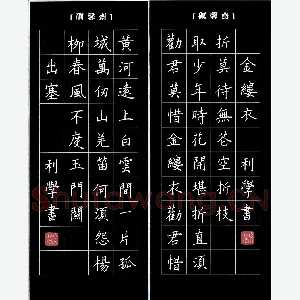 黃河遠上白雲間一片孤
城萬仞山羌笛何須怨楊
柳春風不度玉門關
出塞 利學書
勸君莫惜金縷衣勸君惜
取少年時花開堪折直須
折莫待無花空折枝
金縷衣 利學書